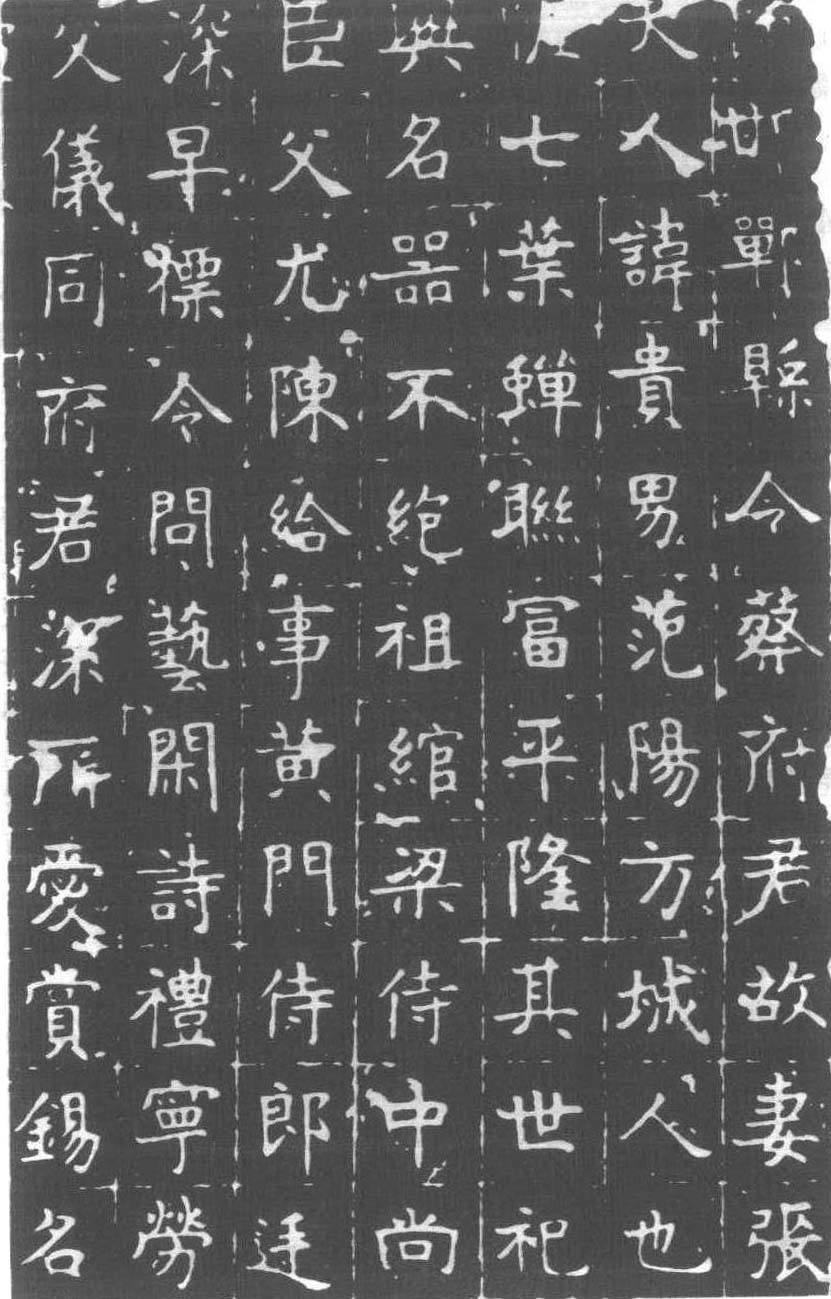 鄲縣令蔡府君故妻張
夫人諱貴男范陽方城人也
七葉蟬聯富平隆其世祀
興名器不絶祖綰梁侍中尚
臣父尤陳給事黄門侍郎
深早摽令問藝閑詩禮寧勞
父儀同府君深所愛賞錫名